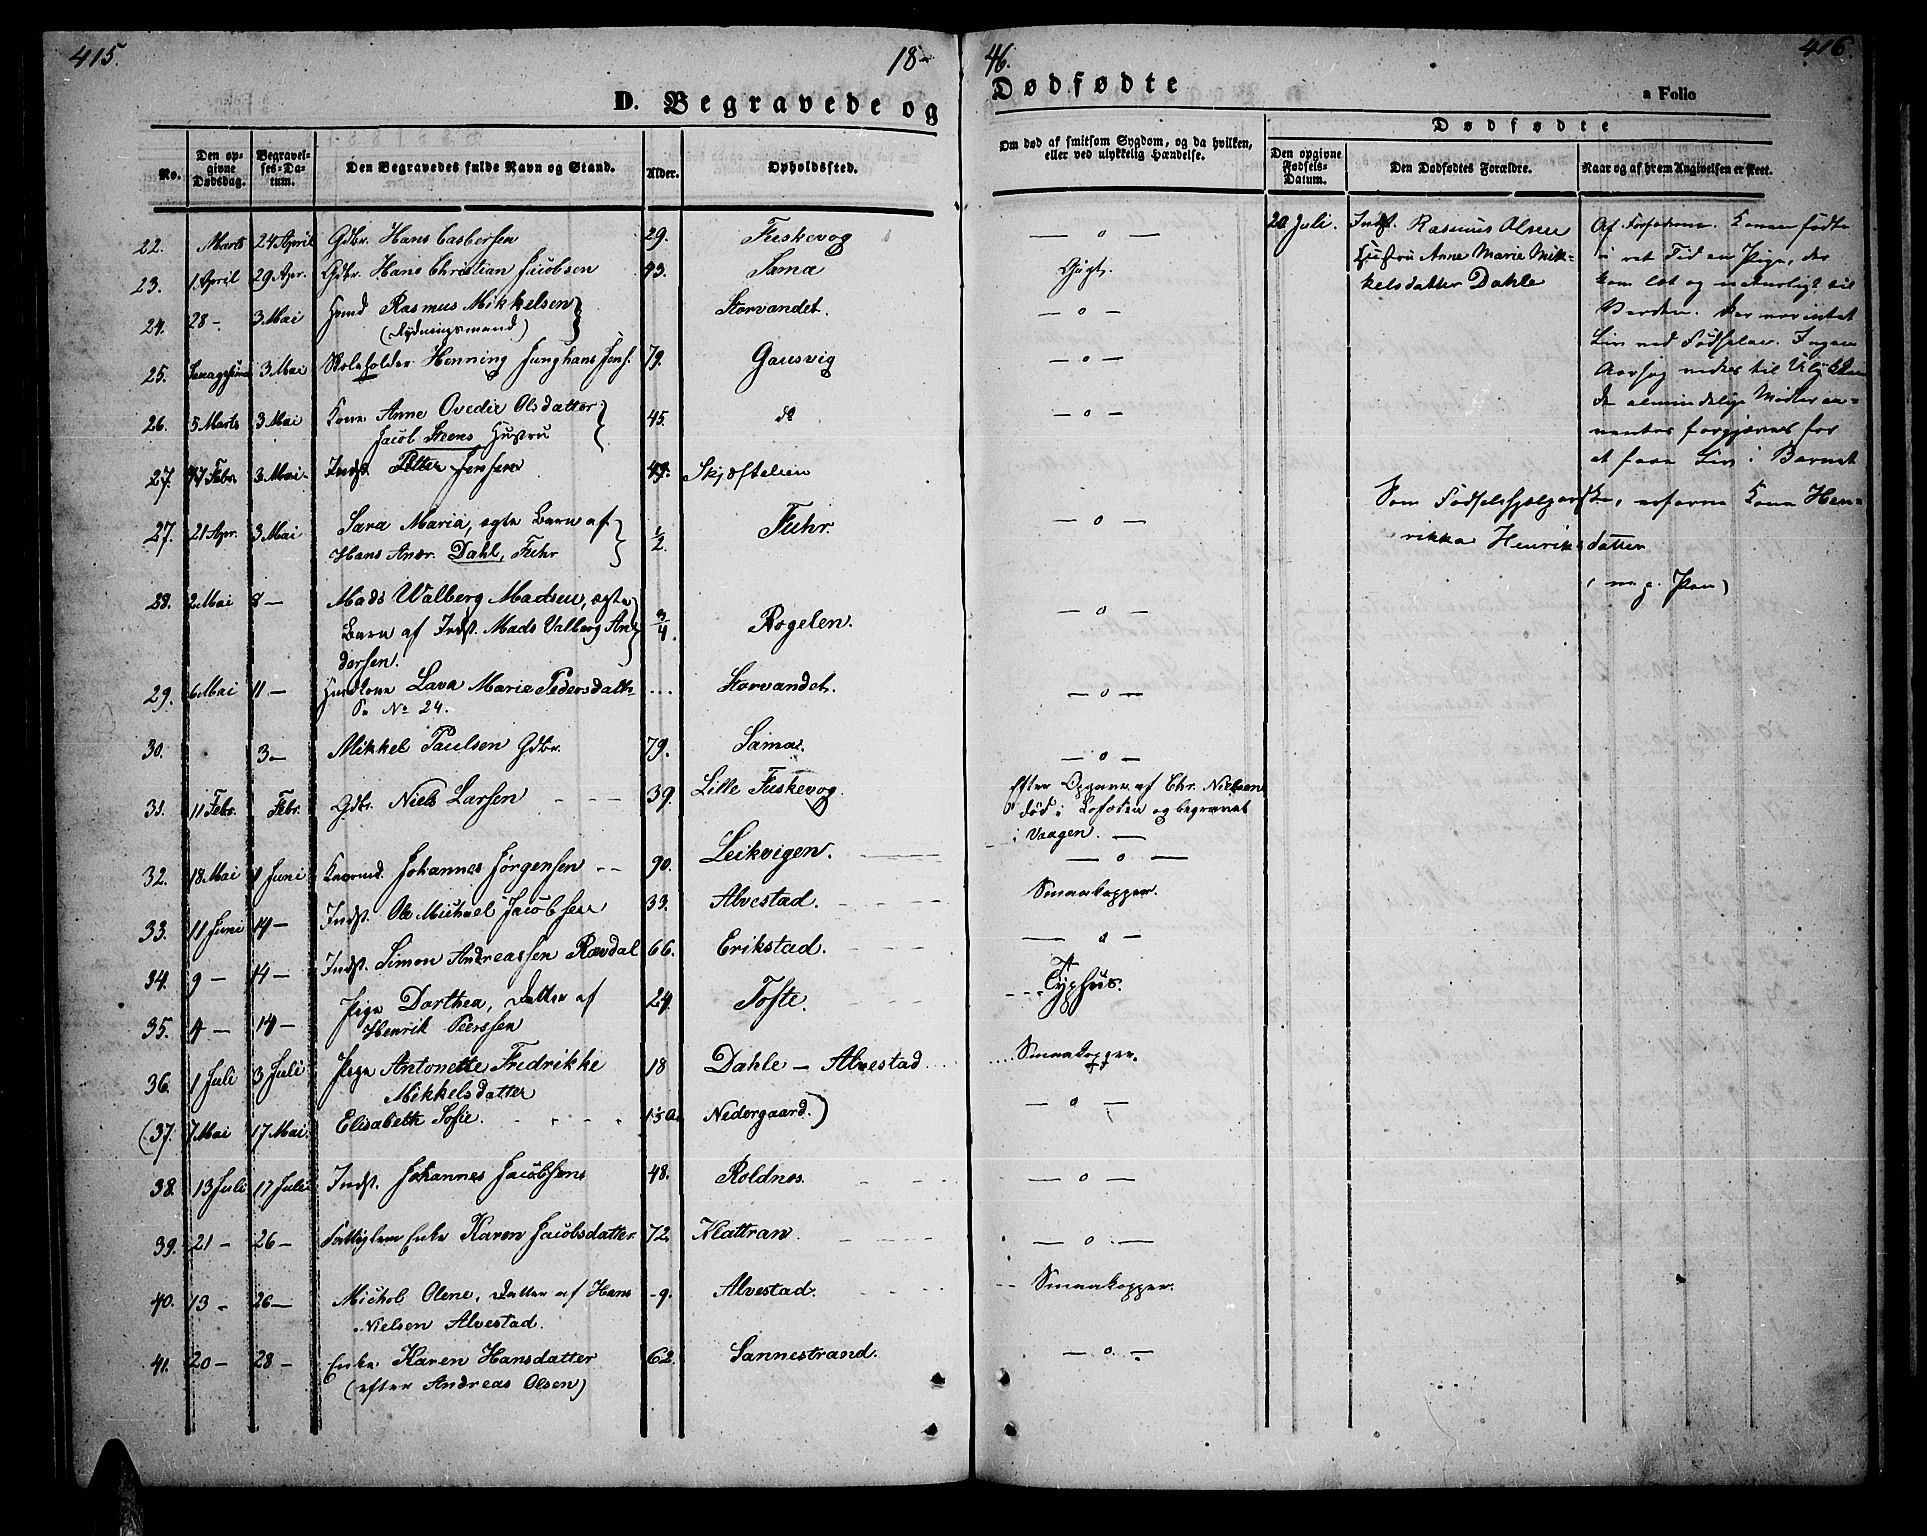 415.
18-
46.
416.
D. Begravede og
Dødfødte
a Folio
No.
Den opgivne Dødsdag.
Begravelses-Datum.
Den Begravedes fulde Navn og Stand.
Alder.
Opholdssted.
Om død af smitsom Sygdom, og da hvilken, eller ved ulykkelig Hændelse.
Dødfødte
Den opgivne Fødsels-Datum.
Den Dødfødtes Forældre.
Naar og af hvem Angivelsen er skeet.
22. Marts 24 April Gdbr. Hans Casbersen 29. Fuskevog — o —
23. 1 April 29 Apr. Gdbr. Hans Christian Jacobsen 93. Sama Gigt.
24. 28 - 3 Mai Rasmus Mikkelsen Storvandet. — o —
(Rydningsmand)
25. 3 Mai Skoleholder Henning Junghans Jens. 79. Gausvig — o —
26. 5 Marts 3 Mai Kone Anne Ovedie Olsdatter 45. do — o —
Jacob Steens Hustru
27. 3 Mai Indst. Petter Jensen 49. Skjøftelien
27. 21 Apr. 3 Mai Sara Maria, ægte Barn af 1/2. Fuhr. — o —
Hans Andr. Dahl, Fuhr
28. 2 Mai 8 — Mads Walberg Madsen, ægte
Barn af Indst. Mads Valberg An- 3/4. Rogelen. — o —
dersen.
29. 6 Mai 11 — Lava Maria Pedersdatt. .... Storvandet. — o —
No 24.
30. 3 — Mikkel Paulsen Gdbr. 79. Sama. — o —
31. 11 Febr. Febr. Gdbr. Niels Larsen 39. Lille Fuskevog. Efter Opgave af Chr. Nielsen
død i Lofoden og begravet
i Vaagen. —
32. 18 Mai 1 Juni Johannes Jørgensen 90. Leikvigen. — o —
33. 11 Juni 14 — Indst. Ole Michael Jacobsen 33. Alvestad. Smaakopper.
34. 9 — 14 — Indst. Simon Andreassen Rævdal 66. Erikstad. — o —
35. 4 — 14 — Pige Dorthea, Datter af 24. Tofte. Typhus.
Henrik Peerssen
36. 1 Juli 3 Juli Pige Antonette Fredrikke 18 Dahle — Alvestad Smaakopper.
Mikkelsdatter
(37. 7 Mai 17 Mai. Elisabeth Sofie. Nedergaard.) — o —
38. 13 Juli 17 Juli Indst. Johannes Jacobsens 48. Roldnes. — o —
39. 21 — 26 — Fattiglem Enke Karen Jacobsdatter 72. Klattran. — o —
40. 13 - 26 — Michol Olene, Datter af Hans - 9. Alvestad. Smaakopper.
Nielsen Alvestad.
41. 20 — 28 — Enke Karen Hansdatter 62. Sannestrand. — o —
(efter Andreas Olsen)
20 Juli. Indst. Rasmus Olsen
Hustru Anne Marie Mik-
kelsdatter Dahle
Af Faderen. Konen fødte
i ret Tid en Pige, der
kom let og naturligt til
Verden. Der var intet
Liv ved Fødselen. Ingen
Aarsag vides til
De almindelige Midler an-
vendtes forgjæves for
at faae Liv i Barnet
Som Fødselshjelperske, erfarne Kone Hen-
rikka Henriksdatter